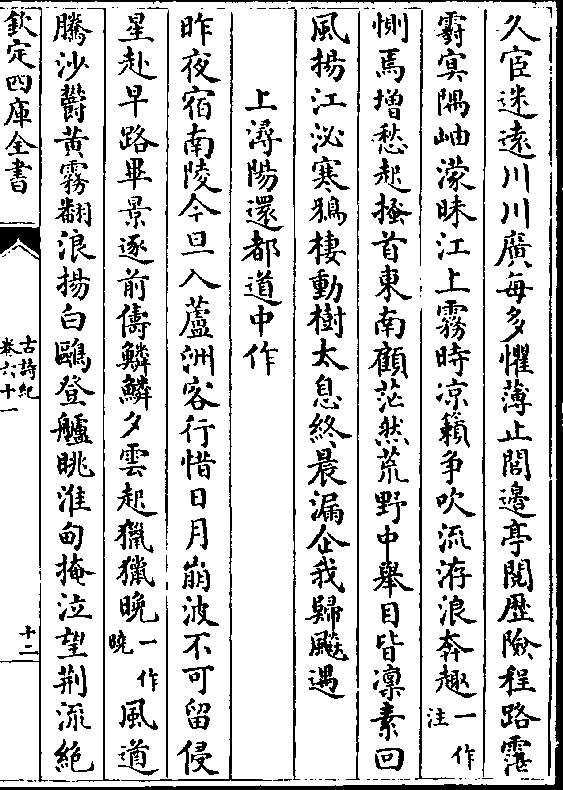 久宦迷遠川川廣每多懼薄止閭邊亭閱歷險程路霮
䨴冥隅岫濛昧江上霧時凉籟争吹流洊浪奔趣一作注
惻焉增愁起搔首東南顧茫然荒野中舉目皆凛素回
風揚江泌寒鴉棲動樹太息終晨漏企我歸飈遇
上潯陽還都道中作
昨夜宿南陵今旦入蘆洲客行惜日月崩波不可留侵
星赴早路畢景逐前儔鱗鱗夕雲起獵獵晚一作曉風遒
騰沙鬱黄霧翻浪揚白鷗登艫眺淮甸掩泣望荆流絶
欽定四庫全書
古詩紀
卷六十一
十二